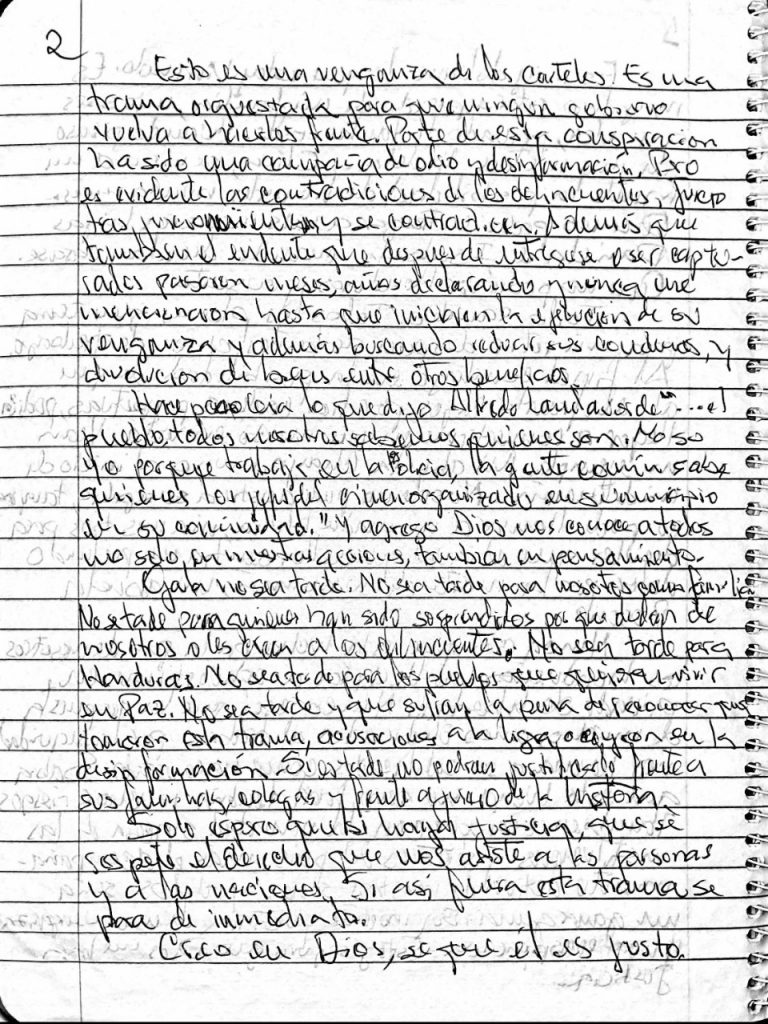 2
Esto es una venganza de los carteles. Es una
trama orquestada para que ningún gobierno
vuelva a hacerles frente. Parte de esta conspiración
ha sido una campaña de odio y desinformación. Pero
es evidente las contradicciones de los delincuentes,
y se contradicen. Además que
también evidente que despues de entregarse o ser captu-
rados pasaron meses, años declarando y nunca me
mencionaron hasta que iniciaron la ejecución de su
venganza y además buscando reducir sus condenas, y
devolución de bienes entre otros beneficios.
Hace poco leía lo que dijo Alfredo Landaverde "... el
pueblo, todos nosotros sabemos quienes son. No so
yo porque trabaje en la Policia, la gente común sabe
quienes los jefes del crimen organizado en su municipio
en su comunidad." Y agrego Dios nos conoce a todos
no solo, en nuestras acciones, tambien en pensamiento.
Ojala no sea tarde. No sea tarde para nosotros como familia
No se tarde para quienes han sido sorprendidos por que dudan de
nosotros o les creen a los delincuentes. No sea tarde para
Honduras. No sea tarde para los pueblos que quieren vivir
en Paz. No sea tarde y que sufran la pena de reconocer que
tomaron esta trama, acusaciones a la ligera o cayeron en la
desinformación. Si es tarde no podran justificarlo frente a
sus familias, colegas y frente a juicio de la historia.
Solo espero que haya justicia, que se
respete el derecho que nos asiste a las personas
y a las naciones. Si asi fuera esta trama se
para de inmediato.
Creo en Dios, se que él es justo.